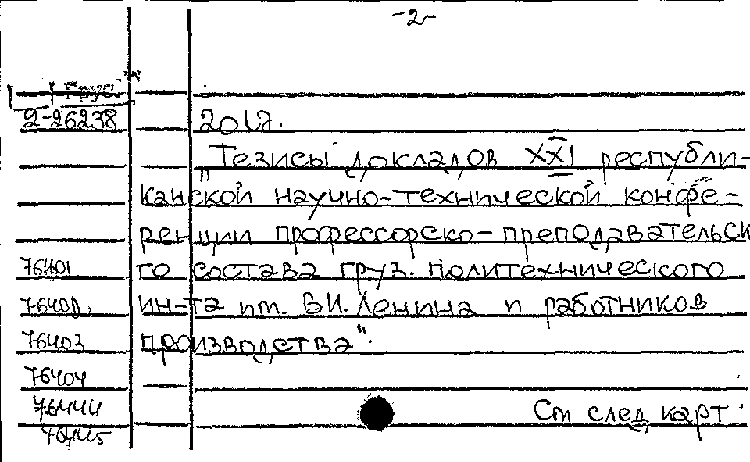 -2-
Груз
2-26238
201 с.
"Тезисы докладов XXI республи-
канской научно-технической конфе-
ренции профессорско-преподавательск
76401 го состава груз. политехнического
76402 ин-та им. В.И. Ленина и работников
76403 производства".
76404
76444 См след карт
76445